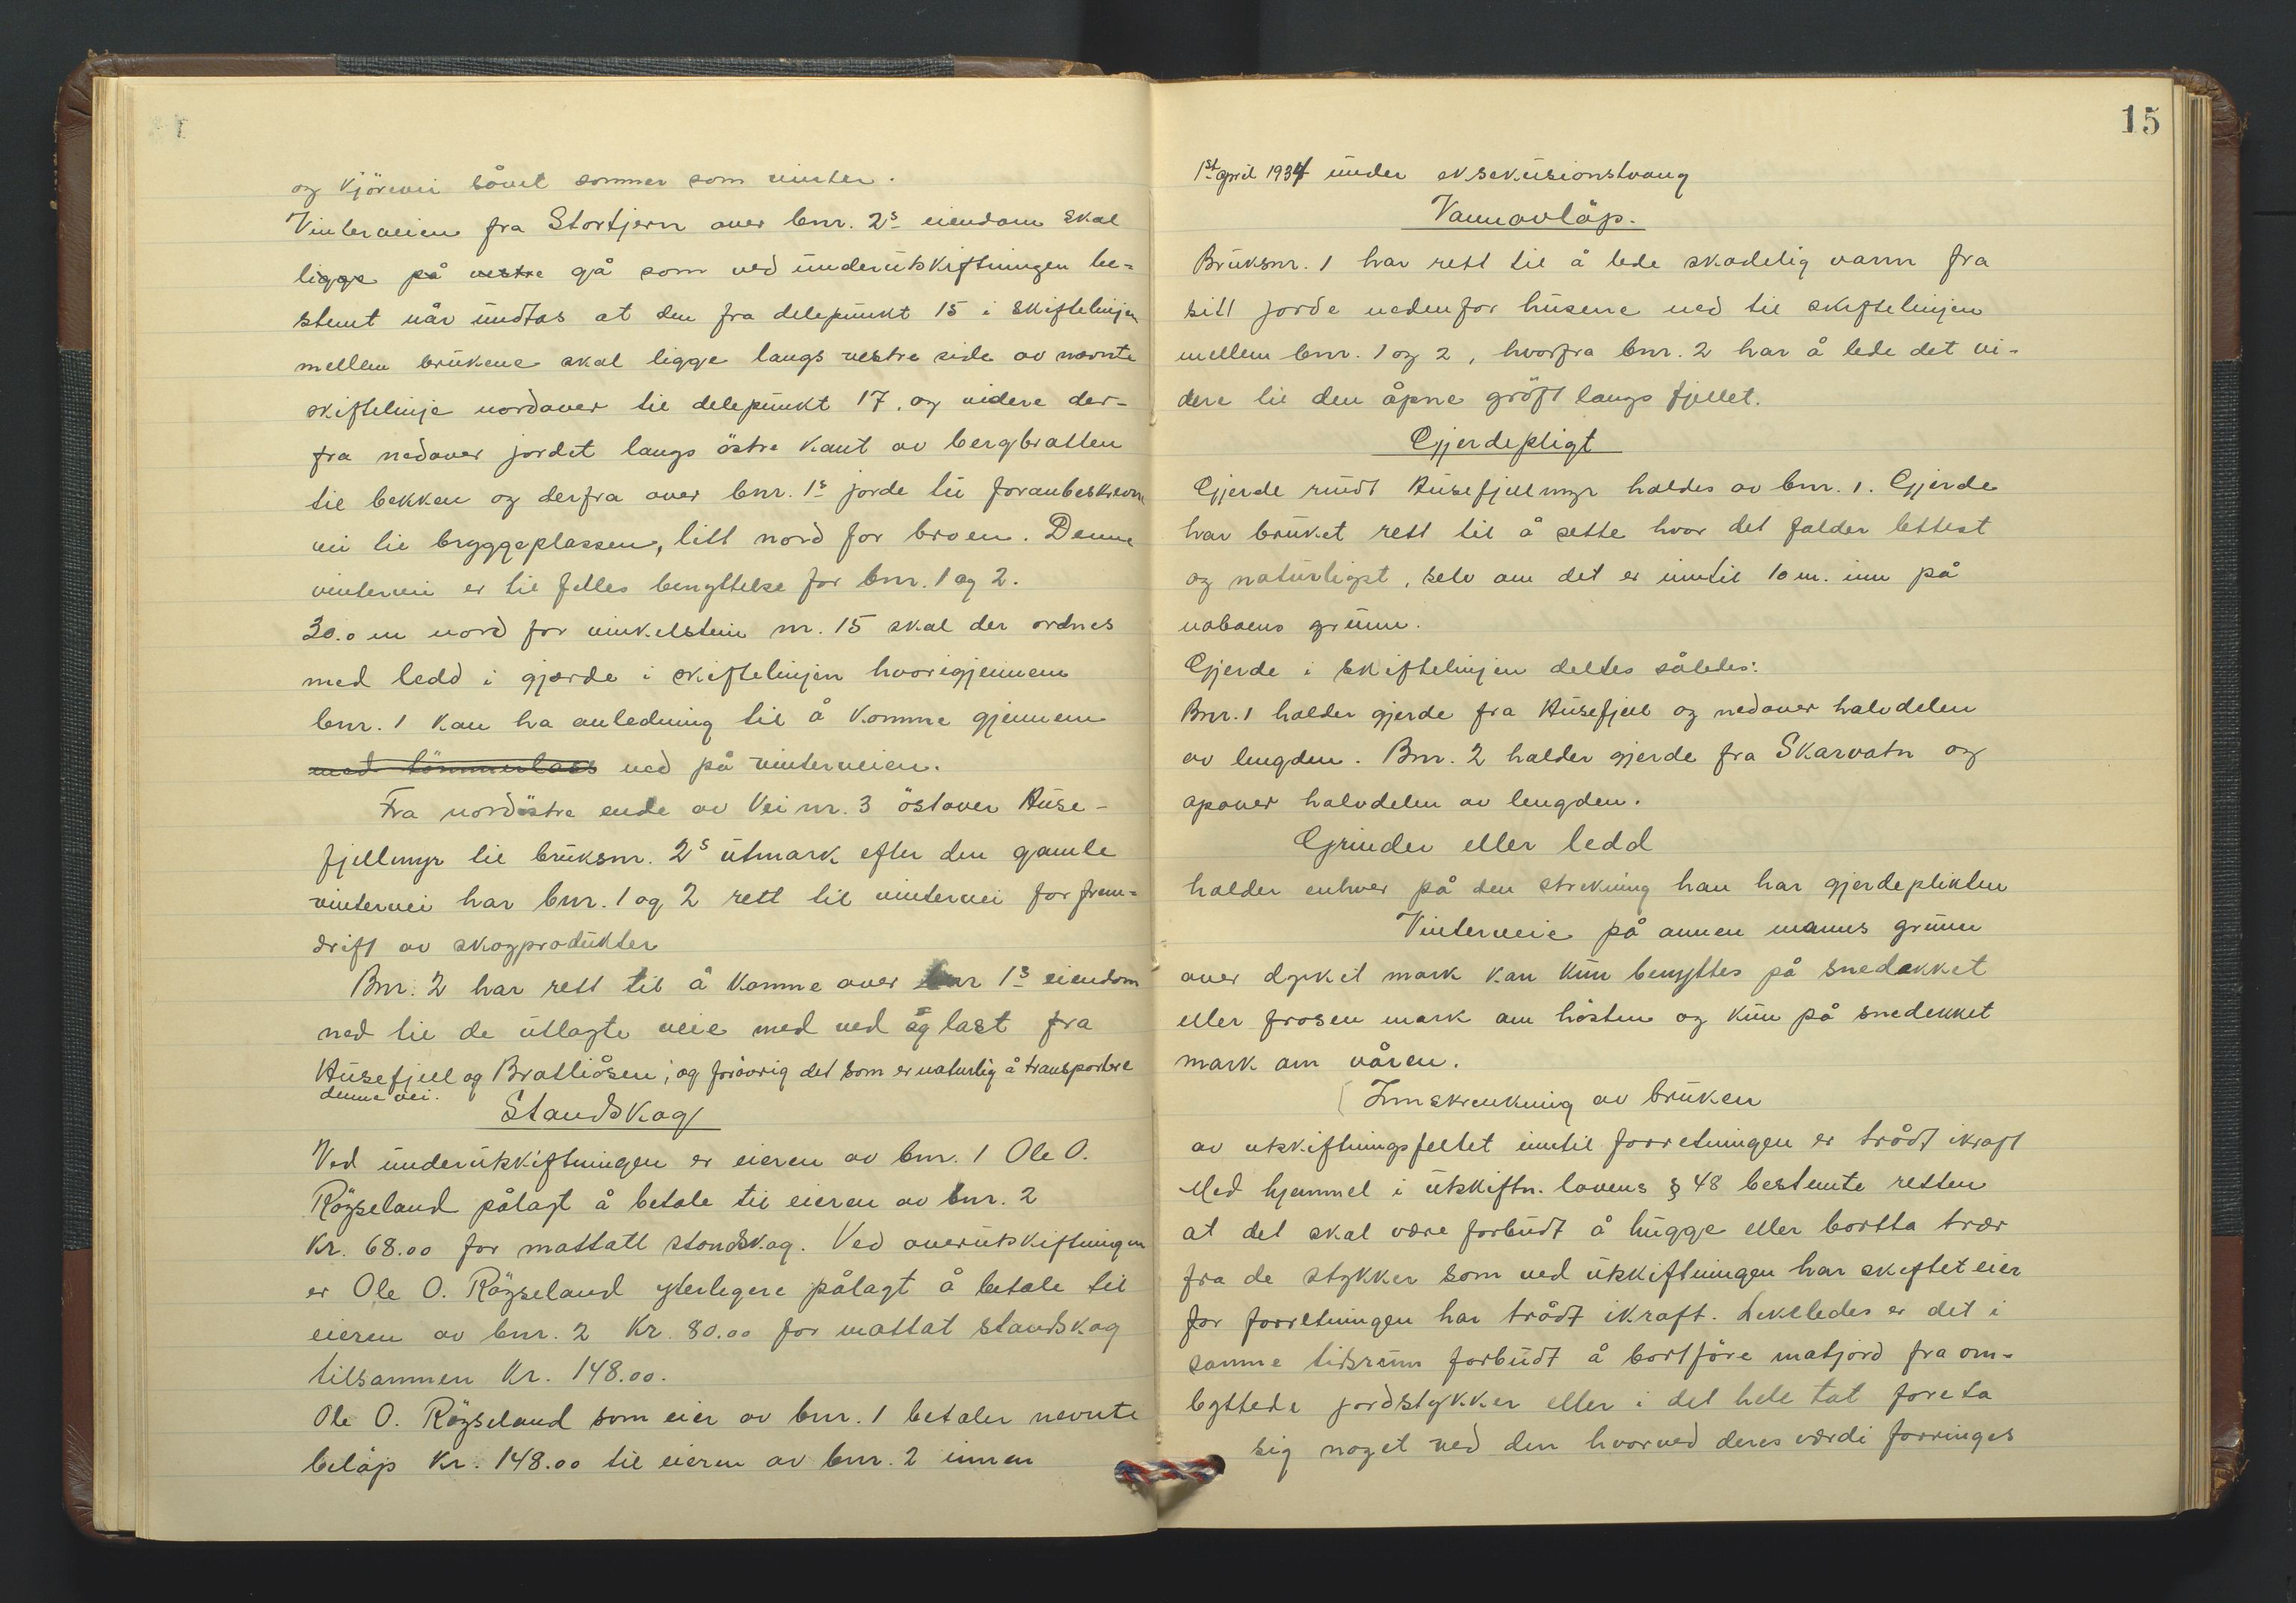 og kjörevei såvel sommer som vinter.
Vinterveien fra Stortjern over bnr. 2s eiendom skal
ligge på vestre gå som ved underutskiftningen be-
stemt når undtas at den fra delepunkt 15 i skiftelinjen
mellem brukene skal ligge langs vestre side av nevnte
skiftelinje nordover til delepunkt 17. og videre der-
fra nedover jordet langs östre kant av bergbratten
til bekken og derfra over bnr. 1s jorde til foranbeskrevne
vei til bryggeplassen, litt nord for broen. Denne
vintervei er til felles benyttelse for bnr. 1 og 2.
30.0 m nord for vinkelstein nr. 15 skal der ordnes
med ledd i gjærde i skiftelinjen hvorigjennem
bnr. 1 kan ha anledning til å komme gjennem
med tömmerlass ned på vinterveien.
Fra nordöstre ende av Vei nr. 3 östover Huse-
fjellmyr til bruksnr. 2s utmark efter den gamle
vintervei har bnr. 1 og 2 rett til vintervei for frem-
drift av skogprodukter
Bnr. 2 har rett til å komme over bnr 1s eiendom
ned til de utlagte veie med ved og last fra
Husefjell og Bratliåsen, og forövrig det som er naturlig å transportere
denne vei.
Standskog
Ved underutskiftningen er eieren av bnr. 1 Ole O.
Röyseland pålagt å betale til eieren av bnr. 2
Kr. 68.00 for mottatt standskog. Ved overutskiftningen
er Ole O. Röyseland yterligere pålagt å betale til
eieren av bnr. 2 Kr. 80.00 for mottat standskog
tilsammen Kr. 148.00.
Ole O. Röyseland som eier av bnr. 1 betaler nevnte
belöp Kr. 148.00 til eieren av bnr. 2 innen
15
1st april 1934 under eksekusionstvang
Vannavlöp.
Bruksnr. 1 har rett til å lede skadelig vann fra
sitt jorde nedenfor husene ned til skiftelinjen
mellem bnr. 1 og 2, hvorfra bnr. 2 har å lede det vi-
dere til den åpne gröft langs fjellet.
Gjerdepligt
Gjerde rundt Husefjellmyr holdes av bnr. 1. Gjerde
har bruket rett til å sette hvor det falder lettest
og naturligst, selv om det er inntil 10 m. inn på
naboens grunn.
Gjerde i skiftelinjen deltes således:
Bnr. 1 holder gjerde fra Husefjell og nedover halvdelen
av lengden. Bnr. 2 holder gjerde fra Skarvatn og
opover halvdelen av lengden.
Grinder eller ledd
holder enhver på den strekning han har gjerdeplikten
Vinterveie på annen manns grunn
over dyrket mark kan kun benyttes på snedekket
eller frosen mark om hösten og kun på snedekket
mark om våren.
Innskrenkning av bruken
av utskiftningsfeltet inntil forretningen er trådt ikraft
Med hjemmel i utskiftn. lovens § 48 bestemte retten
at det skal være forbudt å hugge eller bortta trær
fra de stykker som ved utskiftningen har skiftet eier
för forretningen har trådt ikraft. Likeledes er det i
samme tidsrum forbudt å bortföre matjord fra om-
byttede jordstykker eller i det hele tat foreta
sig noget ved den hvorved deres værdi forringes